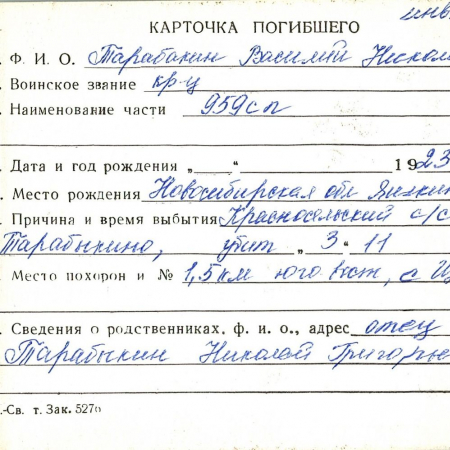 инв
КАРТОЧКА ПОГИБШЕГО
. Ф. И. О. Тарабакин Василий Никола
. Воинское звание кр-ц
. Наименование части 959сп
. Дата и год рождения „ “ 1923
. Место рождения Новосибирская обл Яшкин
. Причина и время выбытия Красносельский с/с
Тарабыкино, убит „ 3 “ 11
. Место похорон и № 1,5 км юго вост, с
. Сведения о родственниках, ф. и о., адрес отец
Тарабыкин Николай Григорье
.-Св. т. Зак. 527о